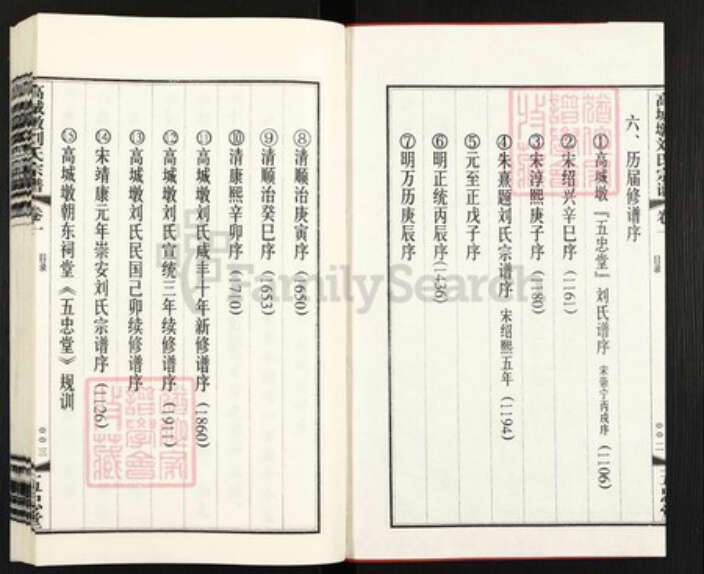 高城墩刘氏宗谱 卷一 目录
六、历届修谱序
①高城墩『五忠堂』刘氏谱序 宋崇宁丙戌序 (1106)
②宋绍兴辛巳序 (1161)
③宋淳熙庚子序 (1180)
④朱熹题刘氏宗谱序 宋绍熙五年 (1194)
⑤元至正戊子序
⑥明正统丙辰序(1436)
⑦明万历庚辰序
⑧清顺治庚寅序 (1650)
⑨清顺治癸巳序 (1653)
⑩清康熙辛卯序 (1710)
⑪高城墩刘氏咸丰十年新修谱序 (1860)
⑫高城墩刘氏宣统三年续修谱序 (1911)
⑬高城墩刘氏民国己卯续修谱序
⑭宋靖康元年崇安刘氏宗谱序 (1126)
高城墩朝东祠堂《五忠堂》规训
高城墩刘氏宗谱 卷一 目录
五忠堂
FamilySearch